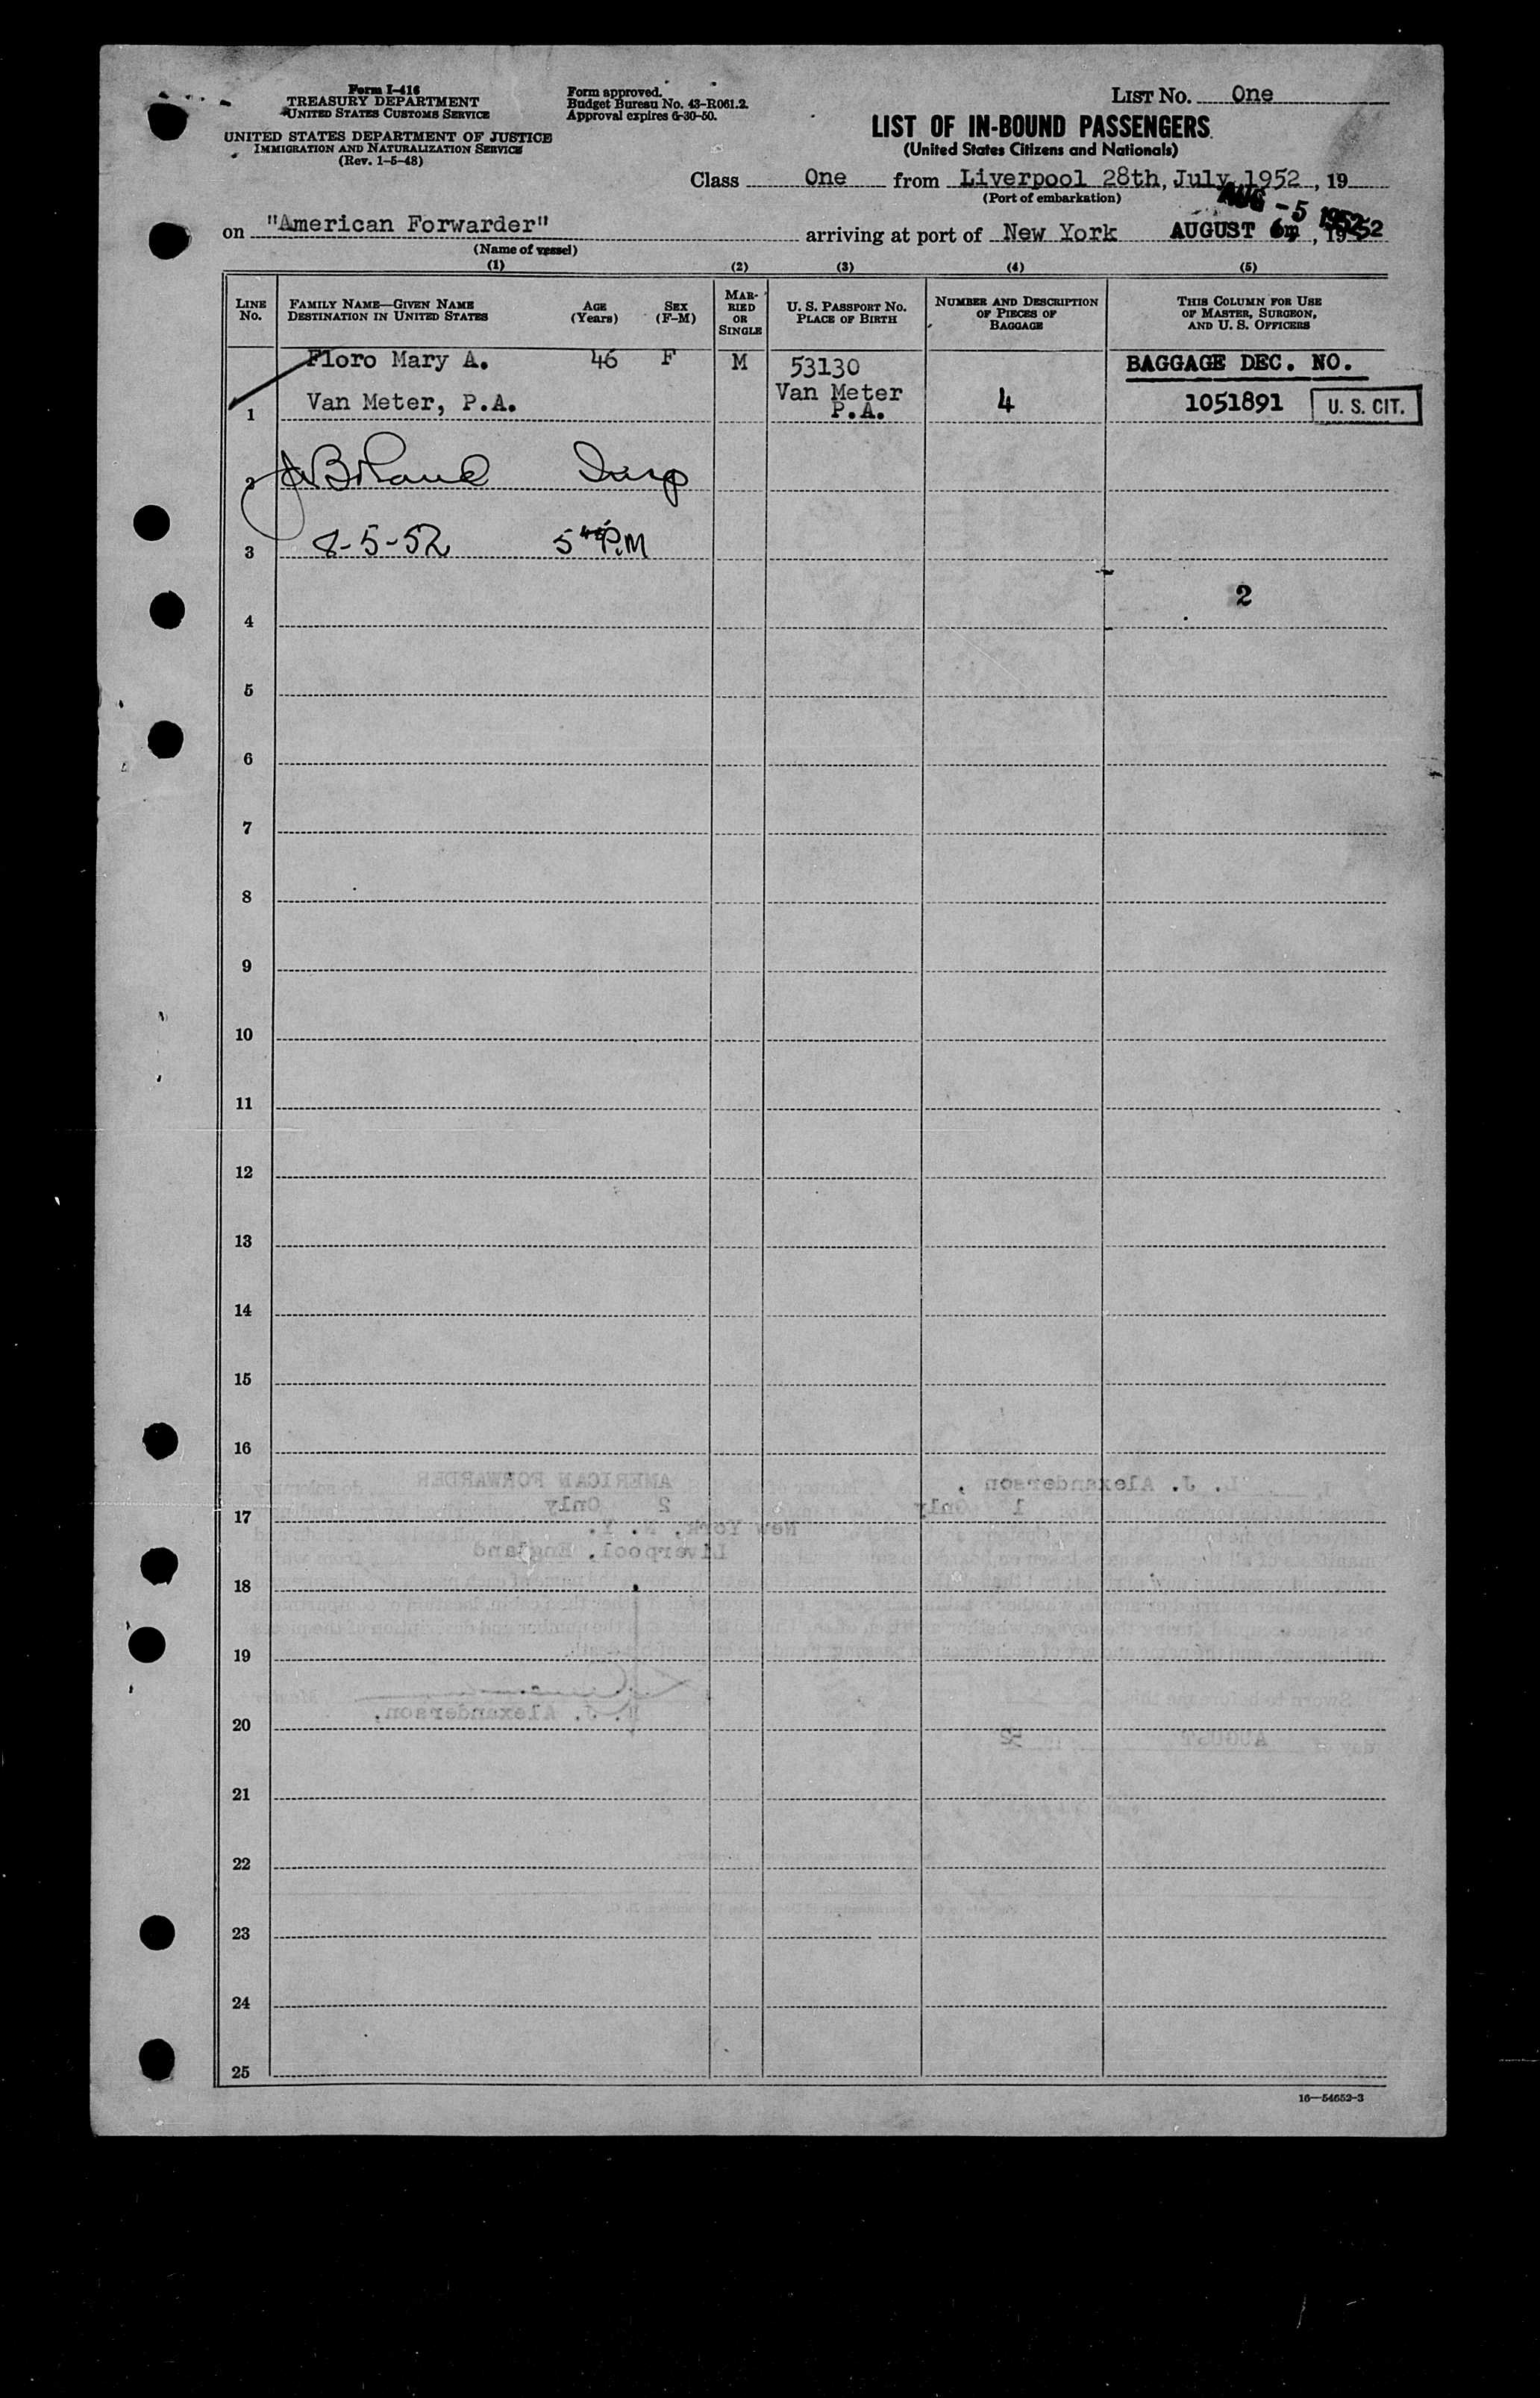 Form I-416
TREASURY DEPARTMENT
UNITED STATES CUSTOMS SERVICE
UNITED STATES DEPARTMENT OF JUSTICE
IMMIGRATION AND NATURALIZATION SERVICE
(Rev. 1-5-48)
Form approved.
Budget Bureau No. 43-R061.2.
Approval expires 6-30-50.
LIST No. One
LIST OF IN-BOUND PASSENGERS
(United States Citizens and Nationals)
Class One from Liverpool 28th, July 1952, 19
(Port of embarkation)
AUG -5 1952
on "American Forwarder" arriving at port of New York AUGUST , 1952
(Name of vessel)
(1) (2) (3) (4) (5)
LINE No.
FAMILY NAME—GIVEN NAME
DESTINATION IN UNITED STATES
AGE (Years)
SEX (F-M)
MARRIED OR SINGLE
U. S. PASSPORT No.
PLACE OF BIRTH
NUMBER AND DESCRIPTION OF PIECES OF BAGGAGE
THIS COLUMN FOR USE OF MASTER, SURGEON, AND U. S. OFFICERS
Floro Mary A. 46 F M 53130 BAGGAGE DEC. NO.
1 Van Meter, P.A. Van Meter P.A. 4 1051891 U. S. CIT.
2 Insp
3 8-5-52 5 P.M
2
4
5
6
7
8
9
10
11
12
13
14
15
16
L. J. Alexanderson, AMERICAN FORWARDER
17 1 Only 2 Only
New York, N. Y.
Liverpool, England
18
19
20 L. J. Alexanderson,
AUGUST 52
21
22
23
24
25
16—54652-3